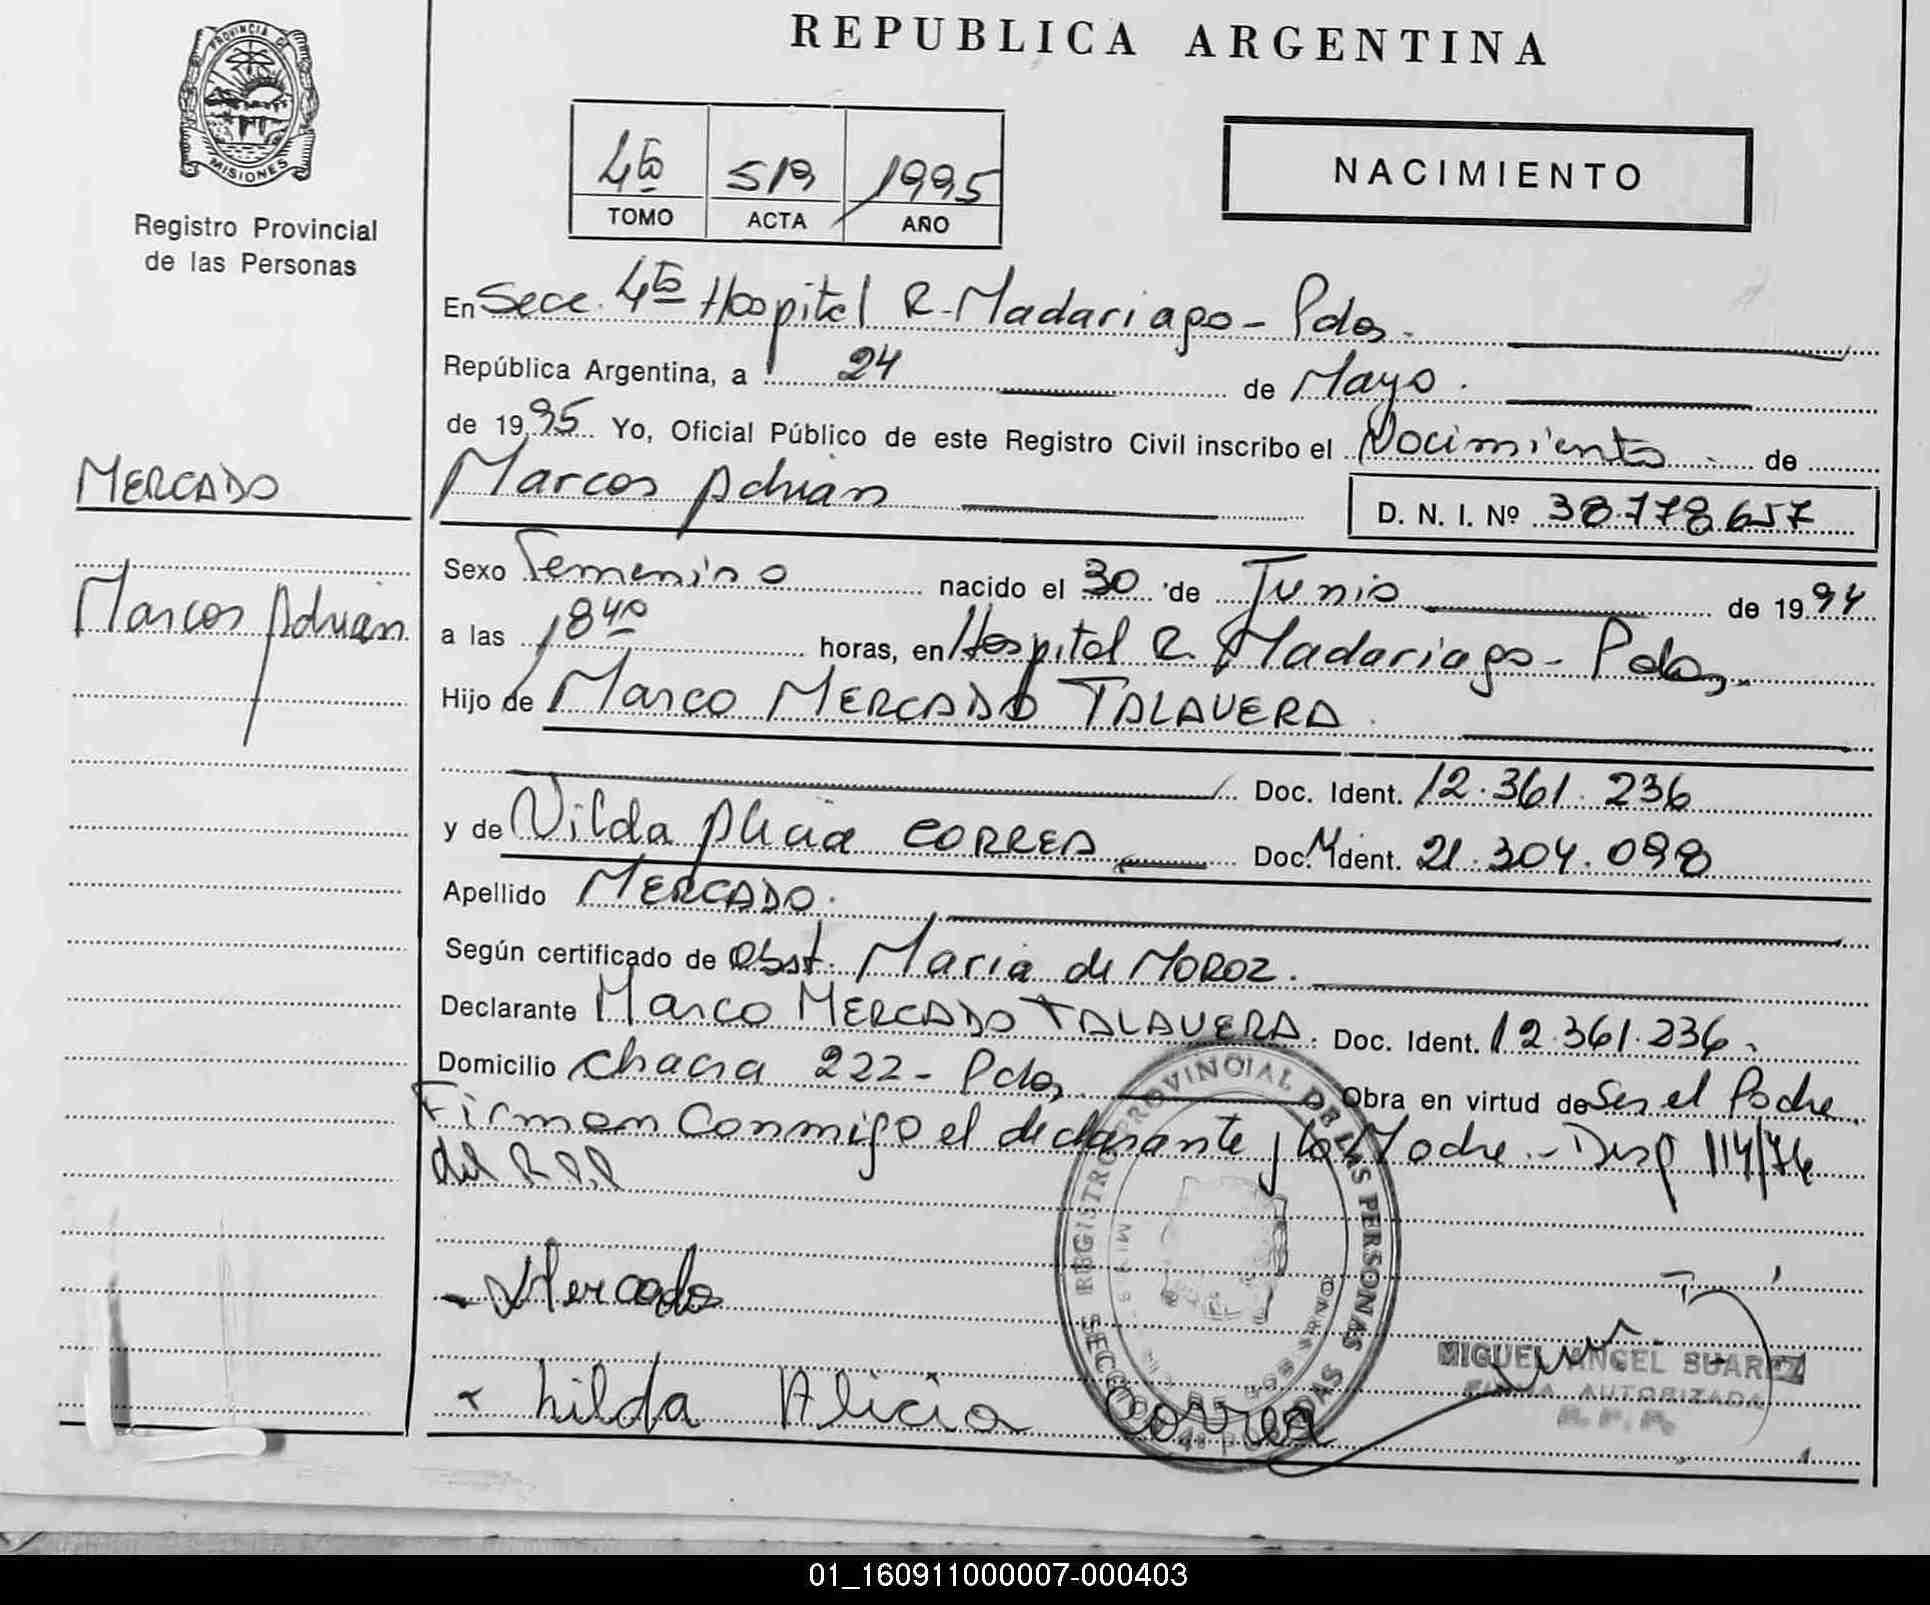 REPUBLICA ARGENTINA
PROVINCIA DE
MISIONES
Registro Provincial
de las Personas
4to 519 1995
TOMO ACTA AÑO
NACIMIENTO
En Secc. 4to Hospital R. Madariaga - Pdas.
República Argentina, a 24 de Mayo.
de 1995 Yo, Oficial Público de este Registro Civil inscribo el Nacimiento de
MERCADO
Marcos Adrian
Marcos Adrian
D. N. I. Nº 38.778.657
Sexo Femenino nacido el 30 de Junio de 1994
a las 1840 horas, en Hospital R. Madariaga - Pdas.
Hijo de Marco MERCADO TALAVERA
Doc. Ident. 12.361.236
y de Nilda Alicia CORREA Doc. Ident. 21.304.098
Apellido MERCADO.
Según certificado de Obst. Maria de MOROZ.
Declarante Marco MERCADO TALAVERA. Doc. Ident. 12.361.236.
Domicilio Chacra 222 - Pdas. Obra en virtud de Ser el Padre
Firman Conmigo el declarante y la Madre. - Disp 114/74
del R.P.P
Mercado
Nilda Alicia Correa
REGISTRO PROVINCIAL DE LAS PERSONAS
MIGUEL ANGEL SUAREZ
FIRMA AUTORIZADA
R. P. P.
01_160911000007-000403